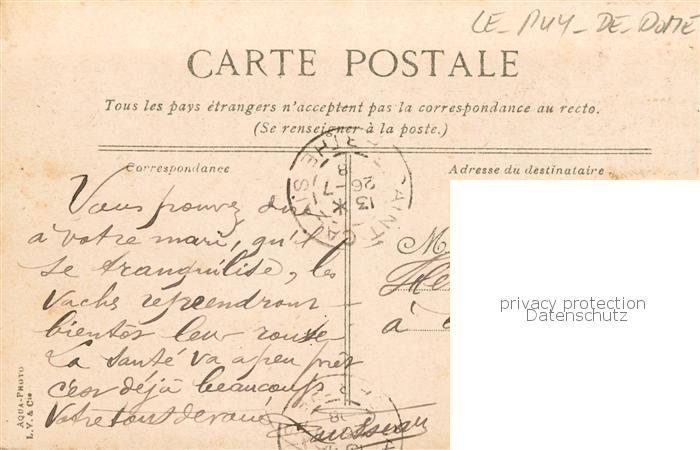 LE PUY-DE-DOME
CARTE POSTALE
Tous les pays étrangers n'acceptent pas la correspondance au recto.
(Se renseigner à la poste.)
Correspondance
Adresse du destinataire
Vous pouvez dire
à votre mari, qu'il
se tranquilise, les
vaches reprendront
bientôt leur route
La santé va a peu près
c'est déjà beaucoup
Votre tout dévoué
M
à
privacy protection
Datenschutz
AQUA-PHOTO
L. V. & Cie